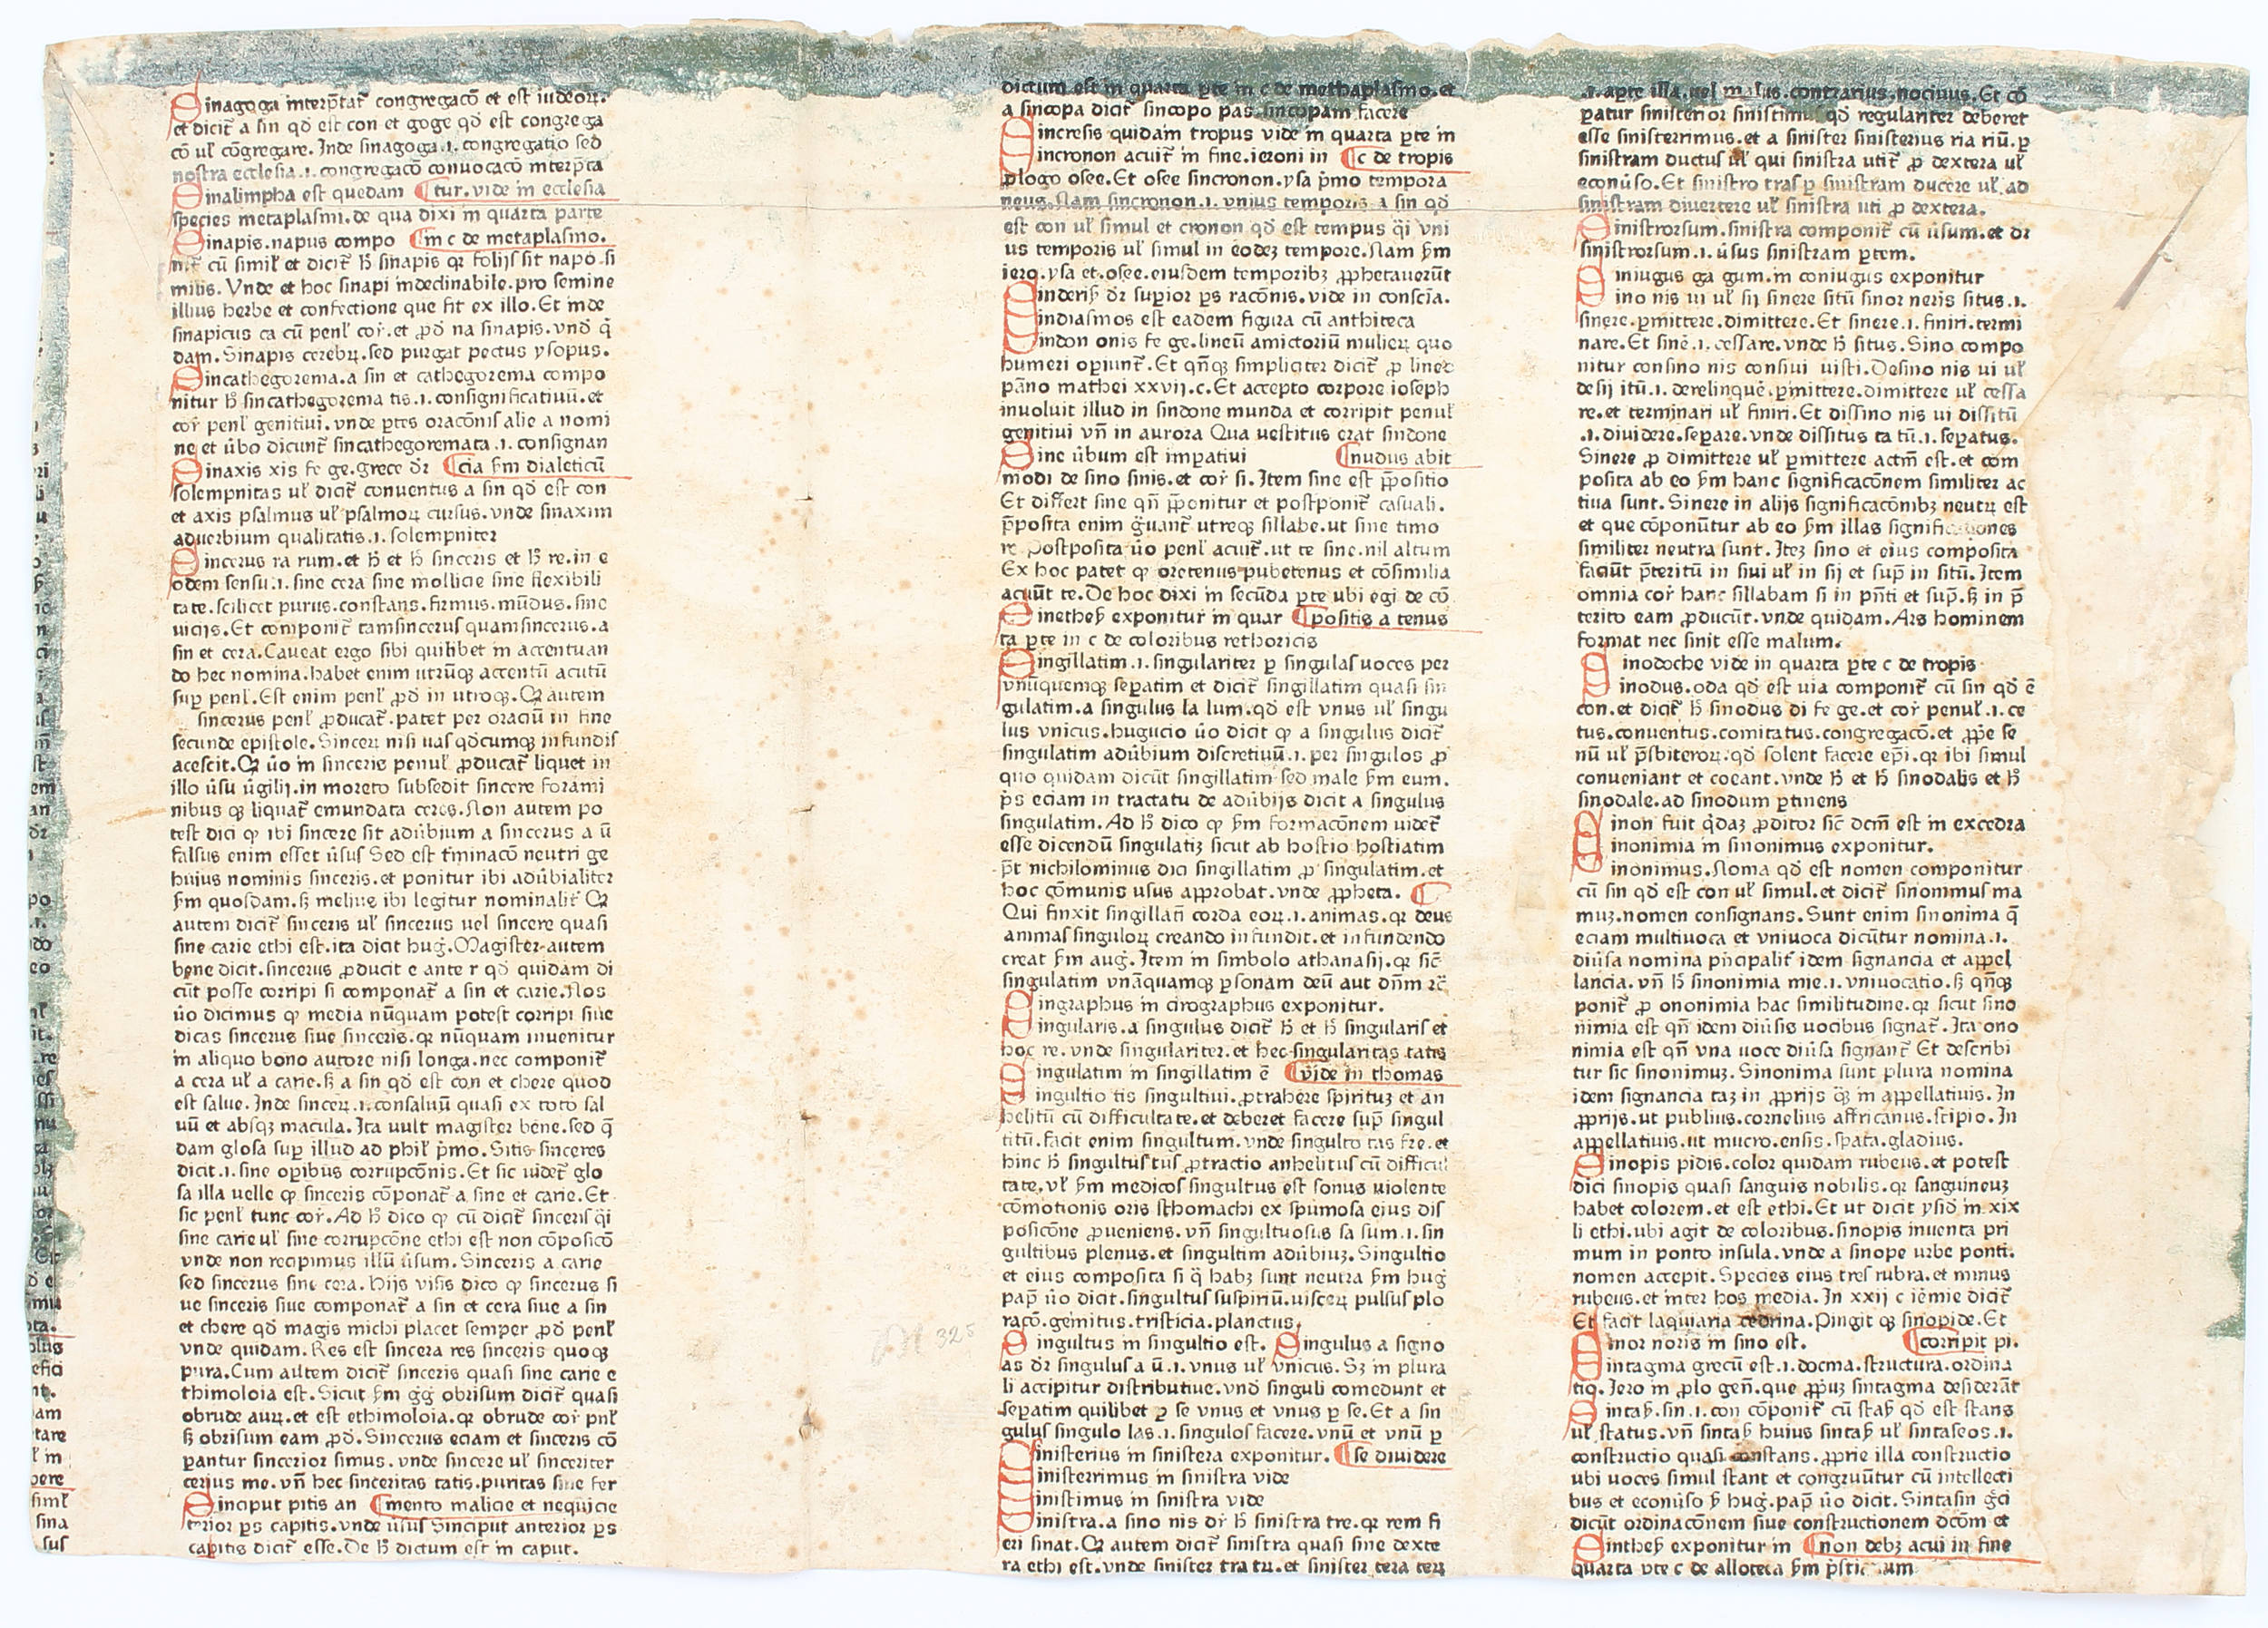 Sinagoga interp̃tat̃ congregacō et est iudeoꝝ.
et dicit̃ a sin qd̕ est con et goge qd̕ est congrega
cō ul̕ cōgregare. Inde sinagoga.i.congregatio sed
nostra ecclesia.i.congregacō conuocacō interp̃ta
Sinalimpha est quedam ¶tur.vide in ecclesia
species metaplasmi.de qua dixi in quarta parte
Sinapis.napus compo ¶in c de metaplasmo.
nit̃ cū simil̕ et dicit̃ h̕ sinapis qꝛ folijs sit napo si
milis. Vnde et hoc sinapi indeclinabile.pro semine
illius herbe et confectione que fit ex illo. Et inde
sinapicus ca cū penl̕ cor̕.et ꝓd̕ na sinapis.vnd̕ q̇
dam. Sinapis cerebꝝ.sed purgat pectus ysopus.
Sincathegorema.a sin et cathegorema compo
nitur h̕ sincathegorema tis.i.consignificatiuū.et
cor̕ penl̕ genitiui.vnde ꝑtes oracōnis alie a nomi
ne et u̕bo dicunt̃ sincathegoremata.i.consignan
Sinaxis xis fe ge.grece dr̕ ¶cia ẜm dialeticū
solempnitas ul̕ dicit̃ conuentus a sin qd̕ est con
et axis psalmus ul̕ psalmoꝝ cursus.vnde sinaxim
aduerbium qualitatis.i.solempniter
Sincerus ra rum.et h̕ et h̕ sinceris et h̕ re.in e
odem sensu.i.sine cera sine mollicie sine flexibili
tate.scilicet purus.constans.firmus.mūdus.sine
uicijs.Et componit̃ tamsincerus quamsincerus.a
sin et cera.Caueat ergo sibi quilibet in accentuan
do hec nomina.habet enim utrūqꝫ accentū acutū
suꝑ penl̕.Est enim penl̕ ꝓd̕ in utroqꝫ.Qꝛ autem
sincerus penl̕ ꝓducat̃.patet per oraciū in fine
secunde epistole.Sinceꝝ nisi uas qd̕cumqꝫ infundis
acescit.Qꝛ u̕o in sinceris penul̕ ꝓducat̃ liquet in
illo u̕su u̕gilij.in moreto subsedit sincere forami
nibus qꝫ liquat̃ emundata ceres.Non autem po
test dici ꝙ ibi sincere sit adu̕bium a sincerus a ū
falsus enim esset u̕sus Sed est t̃minacō neutri ge
huius nominis sinceris.et ponitur ibi adu̕bialiter
ẜm quosdam.ẜ melius ibi legitur nominalit̃ Qꝛ
autem dicit̃ sinceris ul̕ sincerus uel sincere quasi
sine carie ethi est.ita dicit hug̕.Magister autem
bene dicit.sincerus ꝓducit e ante r qd̕ quidam di
cūt posse corripi si componat̃ a sin et carie.Nos
u̕o dicimus ꝙ media nūquam potest corripi siue
dicas sincerus siue sinceris.qꝛ nūquam inuenitur
in aliquo bono autore nisi longa.nec componit̃
a cera ul̕ a carie.ẜ a sin qd̕ est con et chere quod
est salue.Inde sinceꝝ.i.consaluū quasi ex toto sal
uū et absqꝫ macula.Ita uult magister bene.sed q̄
dam glosa suꝑ illud ad phil̕ p̕mo.Sitis sinceres
dicit.i.sine oꝑibus corrupcōnis.Et sic uidet̃ glo
sa illa uelle ꝙ sinceris cōponat̃ a sine et carie.Et
sic penl̕ tunc cor̕.Ad h̕ dico ꝙ cū dicit̃ sinceris q̇i
sine carie ul̕ sine corrupcōne ethi est non cōposicō
vnde non recipimus illū u̕sum.Sinceris a carie
sed sincerus sine cera.Hijs visis dico ꝙ sincerus si
ue sinceris siue componat̃ a sin et cera siue a sin
et chere qd̕ magis michi placet semper ꝓd̕ penl̕
vnde quidam.Res est sincera res sinceris quoqꝫ
pura.Cum autem dicit̃ sinceris quasi sine carie e
thimoloia est.Sicut ẜm gg̕ obrisum dicit̃ quasi
obrude auꝝ.et est ethimoloia.qꝛ obrude cor̕ pnl̕
ẜ obrisum eam ꝓd̕.Sincerus eciam et sinceris cō
ꝑantur sincerior simus.vnde sincere ul̕ sinceriter
cerius me.vn̄ hec sinceritas tatis.puritas sine fer
Sinciput pitis an ¶mento malicie et nequicie
terior ꝑs capitis.vnde u̕sus Sinciput anterior ꝑs
capitis dicit̃ esse.De h̕ dictum est in caput.
dictum est in quarta ꝑte in c de methaplasmo.et
a sincopa dicit̃ sincopo pas.sincopam facere
Sincresis quidam tropus vide in quarta ꝑte in
Sincronon acuit̃ in fine.ieroni in ¶c de tropis
ꝓlogo osee.Et osee sincronon.ysa p̕mo tempora
neus.Nam sincronon.i.vnius temporis a sin qd̕
est con ul̕ simul et cronon qd̕ est tempus q̇i vni
us temporis ul̕ simul in eodeꝫ tempore.Nam ẜm
iero.ysa et.osee.eiusdem temporibꝫ ꝓphetauerūt
Sinderiẜ dr̕ suꝑior ꝑs racōnis.vide in consciā.
Sindiasmos est eadem figura cū anthiteca
Sindon onis fe ge.lineū amictoriū mulieꝝ quo
humeri oꝑiunt̃.Et qn̄qꝫ simpliciter dicit̃ ꝓ lineo
pāno mathei xxvij.c.Et accepto corpore ioseph
inuoluit illud in sindone munda et corripit penul̕
genitiui vn̄ in aurora Qua uestitus erat sindone
Sine u̕bum est imꝑatiui ¶nudus abit
modi de sino sinis.et cor̕ si.Item sine est p̄positio
Et differt sine qn̄ p̄ponitur et postponit̃ casuali.
p̄posita enim g̕uant̃ utreqꝫ sillabe.ut sine timo
re Postposita u̕o penl̕ acuit̃.ut te sine.nil altum
Ex hoc patet ꝙ oretenus pubetenus et cōsimilia
acuūt te.De hoc dixi in secūda ꝑte ubi egi de cō
Sinetheẜ exponitur in quar ¶positis a tenus
ta ꝑte in c de coloribus rethoricis
Singillatim.i.singulariter ꝑ singulas uoces per
vnūquemqꝫ seꝑatim et dicit̃ singillatim quasi sin
gulatim.a singulus la lum.qd̕ est vnus ul̕ singu
lus vnicus.hugucio u̕o dicit ꝙ a singulus dicit̃
singulatim adu̕bium discretiuū.i.per singulos ꝓ
quo quidam dicūt singillatim sed male ẜm eum.
p̕s eciam in tractatu de adu̕bijs dicit a singulus
singulatim.Ad h̕ dico ꝙ ẜm formacōnem uidet̃
esse dicendū singulatiꝫ sicut ab hostio hostiatim
p̄t nichilominus dici singillatim ꝓ singulatim.et
hoc cōmunis usus approbat.vnde ꝓpheta. ¶
Qui finxit singillati̅ corda eoꝝ.i.animas.qꝛ deus
animas singuloꝝ creando infundit.et infundendo
creat ẜm aug̕.Item in simbolo athanasij.qꝛ sic̄
singulatim vnāquamqꝫ ꝑsonam deū aut dn̄m ꝛc̄
Singraphus in cirographus exponitur.
Singularis.a singulus dicit̃ h̕ et h̕ singularis et
hoc re.vnde singulariter.et hec singularitas tatis
Singulatim in singillatim ē ¶vide in thomas
Singultio tis singultiui.ꝓtrahere spirituꝫ et an
helitū cū difficultate.et deberet facere sup̄ singul
titū.facit enim singultum.vnde singulto tas fre.et
hinc h̕ singultus tus ꝓtractio anhelitus cū difficul
tate.vl̕ ẜm medicos singultus est sonus uiolente
cōmotionis oris sthomachi ex spumosa eius dis
posicōne ꝓueniens.vn̄ singultuosus sa sum.i.sin
gultibus plenus.et singultim adu̕biuꝫ.Singultio
et eius composita si q̄ habꝫ sunt neutra ẜm hug̕
pap̄ u̕o dicit.singultus suspiriū.uisceꝝ pulsus plo
racō.gemitus.tristicia.planctus.
Singultus in singultio est. Singulus a signo
as dr̕ singulus a ū.i.vnus ul̕ vnicus.Sꝫ in plura
li accipitur distributiue.vnd̕ singuli comedunt et
seꝑatim quilibet ꝑ se vnus et vnus ꝑ se.Et a sin
gulus singulo las.i.singulos facere.vnū et vnū ꝑ
Sinisterius in sinistera exponitur. ¶se diuidere
Sinisterrimus in sinistra vide
Sinistimus in sinistra vide
Sinistra.a sino nis dr̕ h̕ sinistra tre.qꝛ rem fi
eri sinat.Qꝛ autem dicit̃ sinistra quasi sine dexte
ra ethi est.vnde sinister tra tꝝ.et sinister tera teꝝ
.i.aꝑte illa.uel malus.contrarius.nociuus.Et cō
ꝑatur sinisterior sinistimus qd̕ regulariter deberet
esse sinisterrimus.et a sinister sinisterius ria riū.ꝑ
sinistram ductus ul̕ qui sinistra utit̃ ꝓ dextera ul̕
econu̕so.Et sinistro tras ꝑ sinistram ducere ul̕ ad
sinistram diuertere ul̕ sinistra uti ꝓ dextera.
Sinistrorsum.sinistra componit̃ cū u̕sum.et dr̕
sinistrorsum.i.u̕sus sinistram ꝑtem.
Siniugus ga gum.in coniugus exponitur
Sino nis ui ul̕ sij sinere sitū sinor neris situs.i.
sinere.ꝑmittere.dimittere.Et sinere.i.finiri.termi
nare.Et sinē.i.cessare.vnde h̕ situs.Sino compo
nitur consino nis consiui uisti.Desino nis ui ul̕
desij itū.i.derelinquē.ꝑmittere.dimittere ul̕ cessa
re.et terminari ul̕ finiri.Et dissino nis ui dissitū
.i.diuidere.seꝑare.vnde dissitus ta tū.i.seꝑatus.
Sinere ꝓ dimittere ul̕ ꝑmittere actm̄ est.et com
posita ab eo ẜm hanc significacōnem similiter ac
tiua sunt.Sinere in alijs significacōnibꝫ neutꝝ est
et que cōponūtur ab eo ẜm illas significationes
similiter neutra sunt.Iteꝫ sino et eius composita
faciūt p̄teritū in siui ul̕ in sij et sup̄ in sitū.Item
omnia cor̕ hanc sillabam si in pn̄ti et sup̄.ẜ in p̄
terito eam ꝓducūt.vnde quidam.Ars hominem
format nec sinit esse malum.
Sinodoche vide in quarta ꝑte c de tropis
Sinodus.oda qd̕ est uia componit̃ cū sin qd̕ ē
con.et dicit̃ h̕ sinodus di fe ge.et cor̕ penul̕.i.ce
tus.conuentus.comitatus.congregacō.et ꝓꝑe se
nū ul̕ p̄sbiteroꝝ.qd̕ solent facere ep̄i.qꝛ ibi simul
conueniant et coeant.vnde h̕ et h̕ sinodalis et h̕
sinodale.ad sinodum ꝑtinens
Sinon fuit q̇daꝫ ꝓditor sic̄ dcm̄ est in excedra
Sinonimia in sinonimus exponitur.
Sinonimus.Noma qd̕ est nomen componitur
cū sin qd̕ est con ul̕ simul.et dicit̃ sinonimus ma
muꝫ.nomen consignans.Sunt enim sinonima q̄
eciam multiuoca et vniuoca dicūtur nomina.i.
diu̕sa nomina pn̕cipalit̃ idem signancia et appel
lancia.vn̄ h̕ sinonimia mie.i.vniuocatio.ẜ qn̄qꝫ
ponit̃ ꝓ ononimia hac similitudine.qꝛ sicut sino
nimia est qn̄ idem diu̕sis uocibus signat̃.Ita ono
nimia est qn̄ vna uoce diu̕sa signant̃ Et describi
tur sic sinonimuꝫ.Sinonima sunt plura nomina
idem signancia taꝫ in ꝓprijs qꝫ̄ in appellatiuis.In
ꝓprijs.ut publius.cornelius affricanus.scipio.In
appellatiuis.ut mucro.ensis.spata.gladius.
Sinopis pidis.color quidam rubeus.et potest
dici sinopis quasi sanguis nobilis.qꝛ sanguineuꝫ
habet colorem.et est ethi.Et ut dicit ysid̕ in xix
li ethi.ubi agit de coloribus.sinopis inuenta pri
mum in ponto insula.vnde a sinope urbe ponti.
nomen accepit.Species eius tres rubra.et minus
rubeus.et inter hos media.In xxij c ie̅mie dicit̃
Et facit laquiaria cedrina.Pingit qꝫ sinopide.Et
Sinor noris in sino est. ¶corripit pi.
Sintagma grecū est.i.docma.structura.ordina
tio.Iero in ꝓlo gen̄.que ꝓpͥuꝫ sintagma desiderāt
Sintaẜ.sin.i.con cōponit̃ cū staẜ qd̕ est stans
ul̕ status.vn̄ sintaẜ huius sintaẜ ul̕ sintaseos.i.
constructio quasi constans.ꝓprie illa constructio
ubi uoces simul stant et congruūtur cū intellecti
bus et econu̕so ẜ hug̕.pap̄ u̕o dicit.Sintasin g̕ci
dicūt ordinacōnem siue constructionem dcōm et
Sintheẜ exponitur in ¶non debꝫ acui in fine
quarta ꝑte c de alloteca ẜm